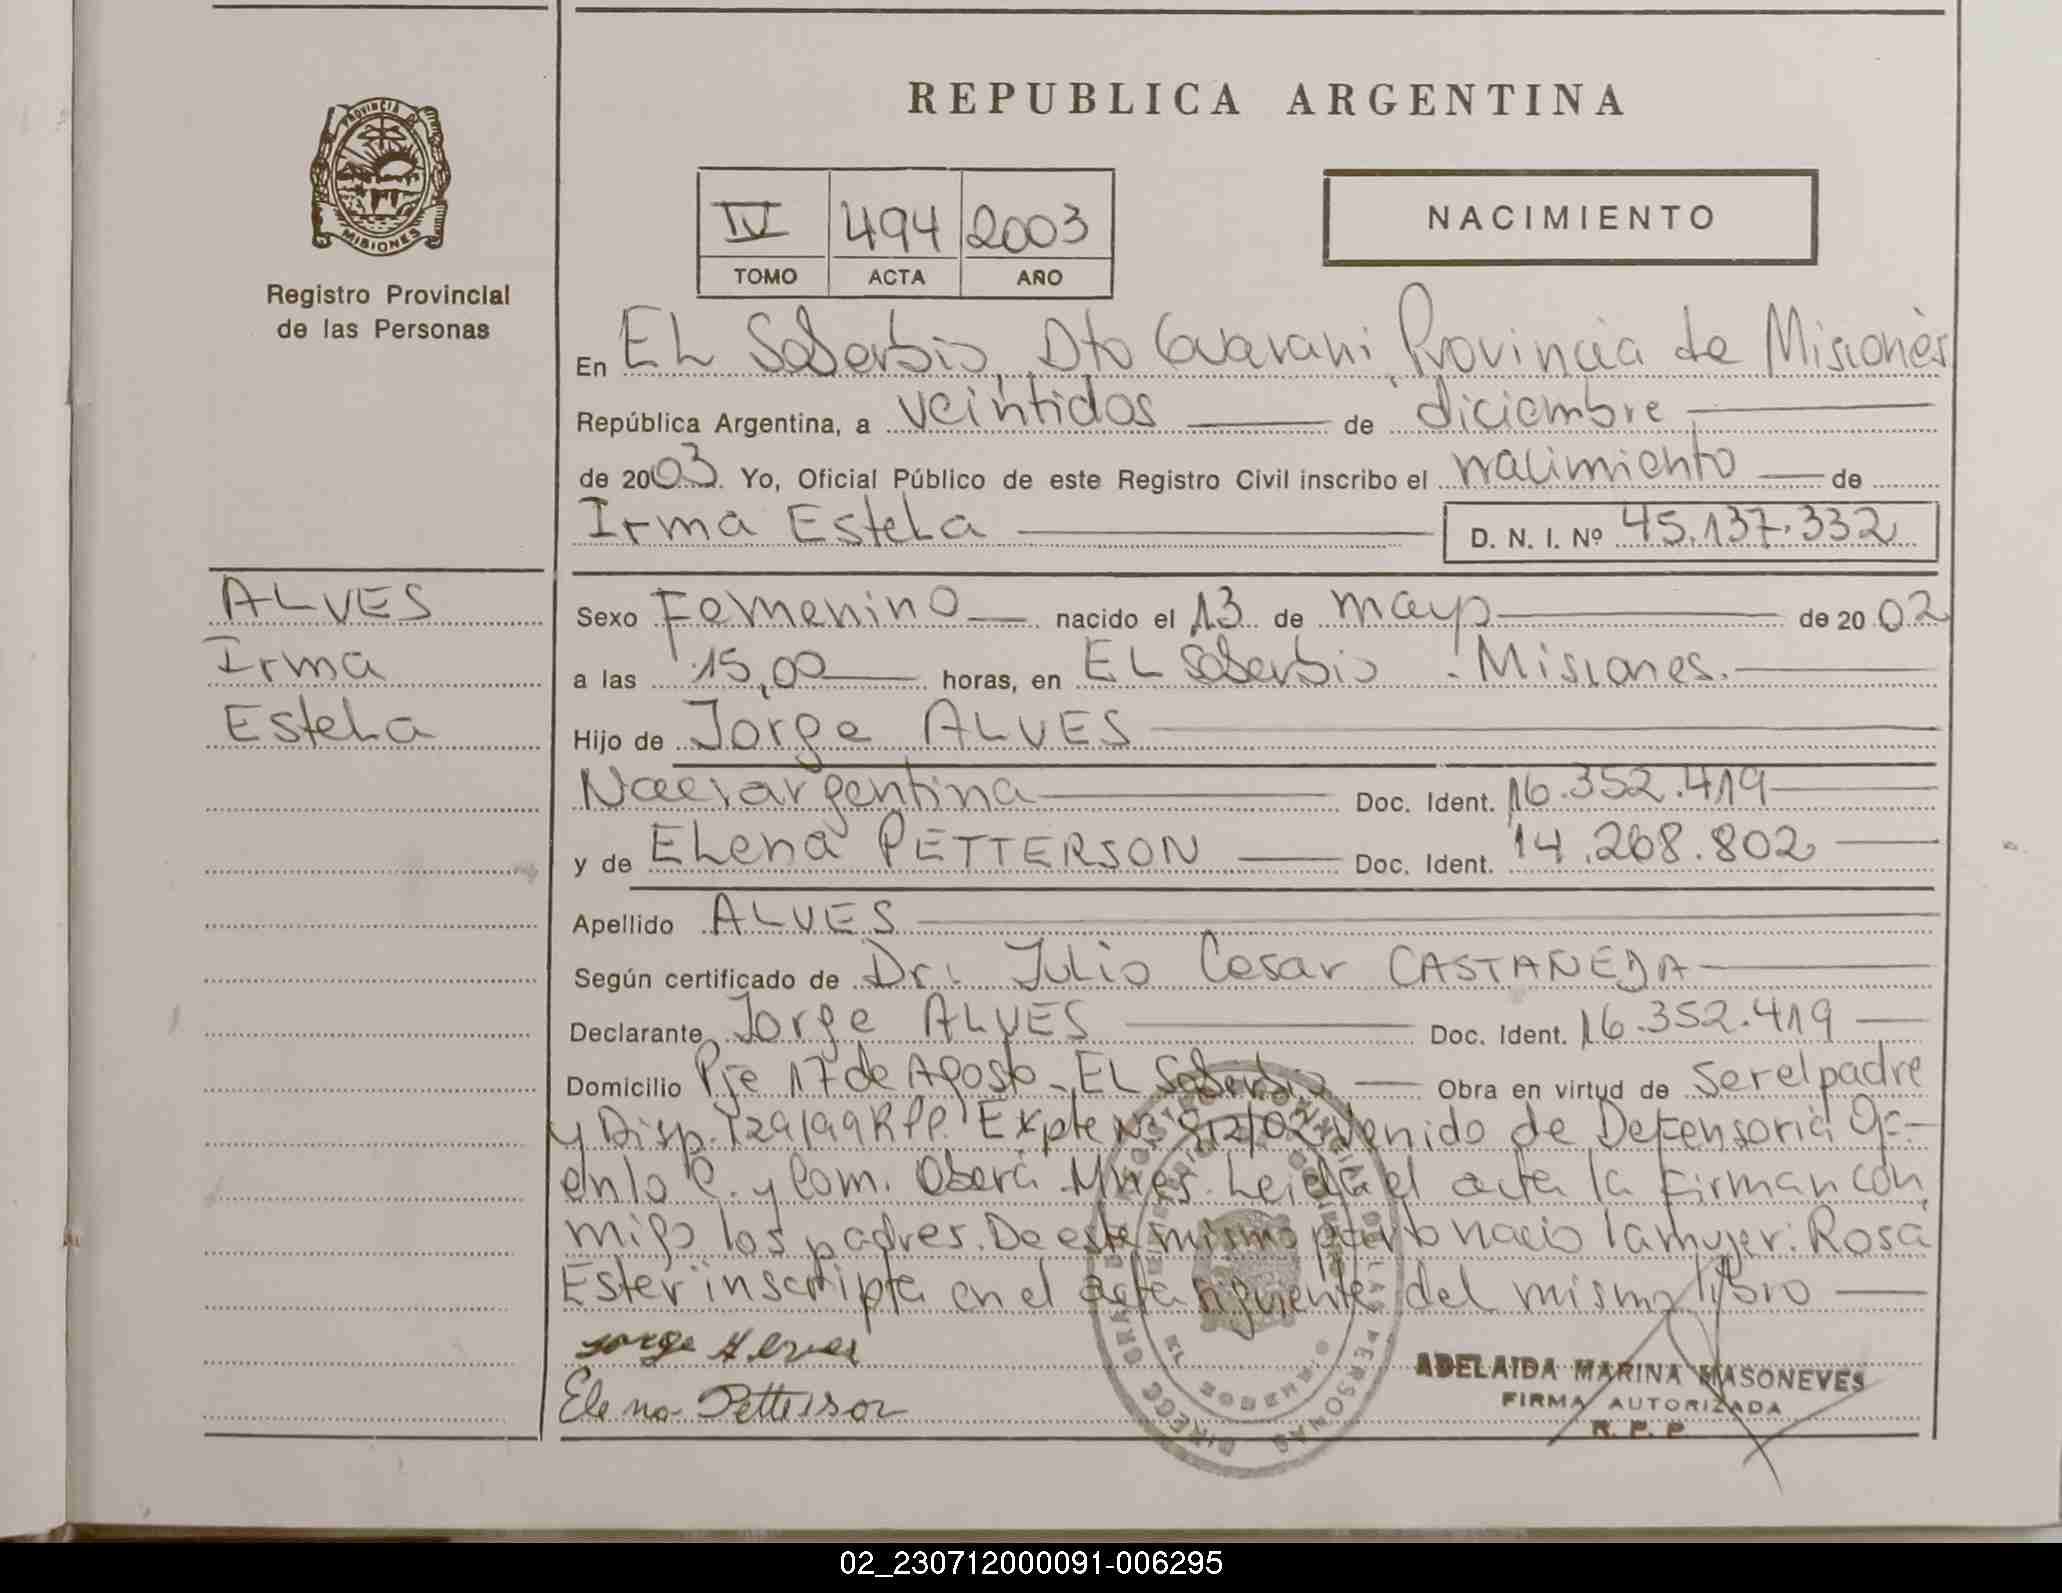 REPUBLICA ARGENTINA
PROVINCIA DE
MISIONES
Registro Provincial
de las Personas
IV 494 2003
TOMO ACTA AÑO
NACIMIENTO
En EL Soberbio, Dto Guarani, Provincia de Misiones
República Argentina, a veintidos de diciembre
de 2003. Yo, Oficial Público de este Registro Civil inscribo el nacimiento de
Irma Estela D. N. I. Nº 45.137.332
ALVES
Irma
Estela
Sexo Femenino nacido el 13 de mayo de 2002
a las 15,00 horas, en EL Soberbio - Misiones.
Hijo de Jorge ALVES
Nac. argentina Doc. Ident. 16.352.419
y de Elena PETTERSON Doc. Ident. 14.268.802
Apellido ALVES
Según certificado de Dr. Julio Cesar CASTAÑEDA
Declarante Jorge ALVES Doc. Ident. 16.352.419
Domicilio Pje 17 de Agosto - EL Soberbio Obra en virtud de ser el padre
y Disp. 729/99 RPP. Expte Nº 912/02 venido de Defensoria Of.-
en lo C. y Com. Oberá Mnes. Leida el acta la firman con
migo los padres. De este mismo parto nacio la mujer: Rosa
Ester inscripta en el acta siguiente del mismo libro
Jorge Alves
Elena Petterson
ADELAIDA MARINA MASONEVES
FIRMA AUTORIZADA
R. P. P.
02_230712000091-006295